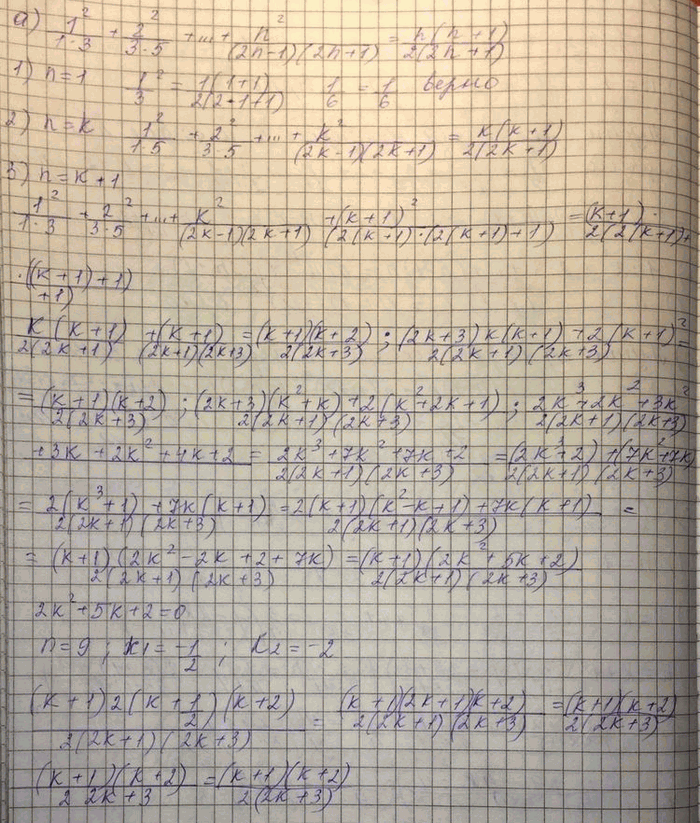 а) 1²/(1·3) + 2²/(3·5) + ... + n²/((2n-1)(2n+1)) = n(n+1)/(2(2n+1))
1) n=1 1²/3 = 1(1+1)/(2(2·1+1)) 1/6 = 1/6 верно
2) n=k 1²/(1·5) + 2²/(3·5) + ... + k²/((2k-1)(2k+1)) = k(k+1)/(2(2k+1))
3) n=k+1
1²/(1·3) + 2²/(3·5) + ... + k²/((2k-1)(2k+1)) + (k+1)²/((2(k+1)·(2(k+1)+1)) = (k+1)·/(2(2(k+1)+
·((k+1)+1)/+1)
k(k+1)/(2(2k+1)) + (k+1)/((2k+1)(2k+3)) = (k+1)(k+2)/(2(2k+3)) ; ((2k+3)k(k+1)+2(k+1)²)/(2(2k+1)(2k+3)) =
= (k+1)(k+2)/(2(2k+3)) ; ((2k+3)(k²+k)+2(k²+2k+1))/(2(2k+1)(2k+3)) ; (2k³+2k²+3k²/(2(2k+1)(2k+3))
+3k+2k²+4k+2 = (2k³+7k²+7k+2)/(2(2k+1)(2k+3)) = ((2k³+2)+(7k²+7k)/(2(2k+1)(2k+3))
= (2(k³+1)+7k(k+1))/(2(2k+1)(2k+3)) = (2(k+1)(k²-k+1)+7k(k+1))/(2(2k+1)(2k+3)) =
= (k+1)(2k²-2k+2+7k)/(2(2k+1)(2k+3)) = (k+1)(2k²+5k+2)/(2(2k+1)(2k+3))
2k²+5k+2=0
n=9 ; k1=-1/2 ; k2=-2
(k+1)2(k+1/2)(k+2)/(2(2k+1)(2k+3)) = (k+1)(2k+1)(k+2)/(2(2k+1)(2k+3)) = (k+1)(k+2)/(2(2k+3))
(k+1)(k+2)/(2 2k+3) = (k+1)(k+2)/(2(2k+3))